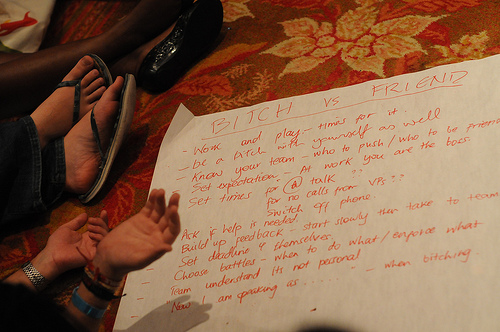 BITCH vs FRIEND
- Work and play - times for it.
- be a bitch with yourself as well
- Know your team - who to push / who to be friends
- Set expectation - At work you are the boss
- Set times for @ talk ??
for no calls from VPs ??
Switch off phone.
Ask if help is needed
Build up feedback - start slowly then take to team
Set deadline 4 themselves.
- Choose battles - when to do what / enforce what
- Team understand its not personal
- "Now I am speaking as ..... - when bitching